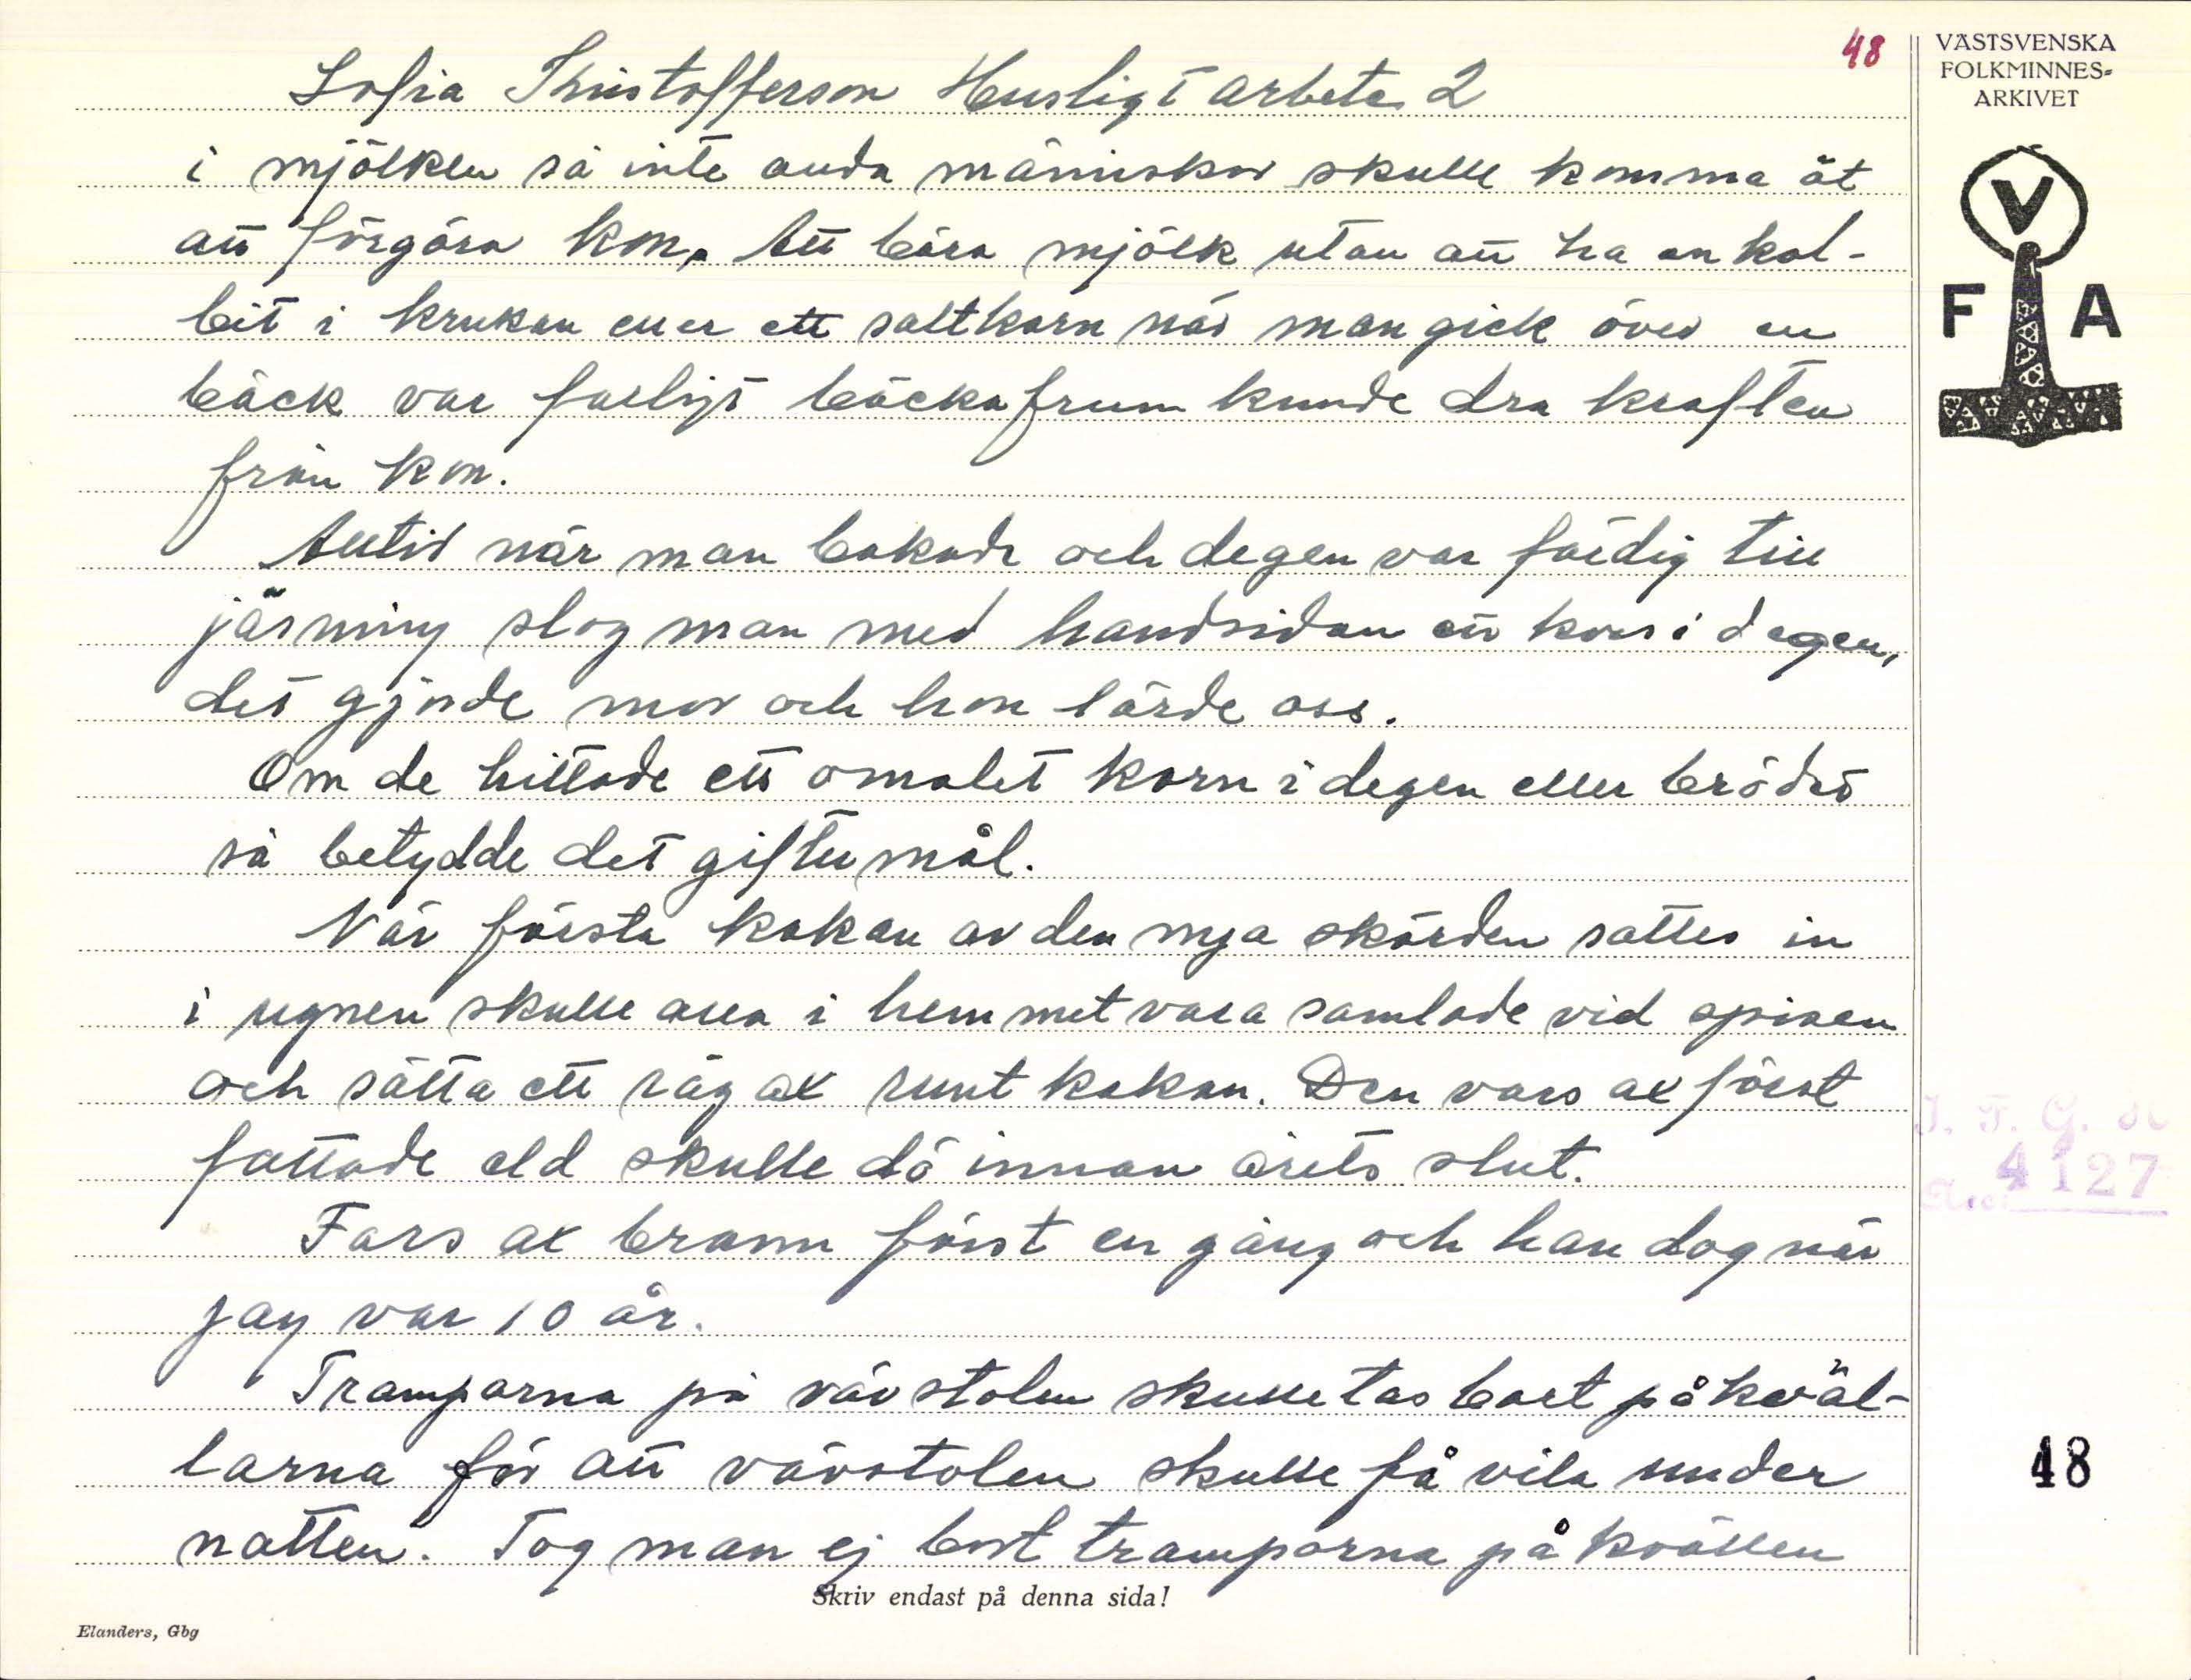 48
VÄSTSVENSKA
FOLKMINNES=
ARKIVET
V
F A
Sofia Kristofferson Husligt arbete 2
i mjölken så inte onda människor skulle komma åt
att förgöra kon. Att bära mjölk utan att ha en kol-
bit i krukan eller ett saltkorn när man gick över en
bäck var farligt bäckafrun kunde dra kraften
från kon.
Alltid när man bakade och degen var färdig till
järning slog man med handsidan ett kors i degen,
det gjorde mor och hon lärde oss.
Om de hittade ett omalet korn i degen eller brödet
så betydde det giftermål.
När första kakan av den nya skörden sattes in
i ugnen skulle alla i hemmet vara samlade vid spisen
och sätta ett råg ax runt kakan. Den vars ax först
fattade eld skulle dö innan årets slut.
Fars ax brann först en gång och han dog när
jag var 10 år.
Tramporna på vävstolen skulle tas bort på kväl-
larna för att vävstolen skulle få vila under
natten. Tog man ej bort tramporna på kvällen
4127
48
Skriv endast på denna sida!
Elanders, Gbg